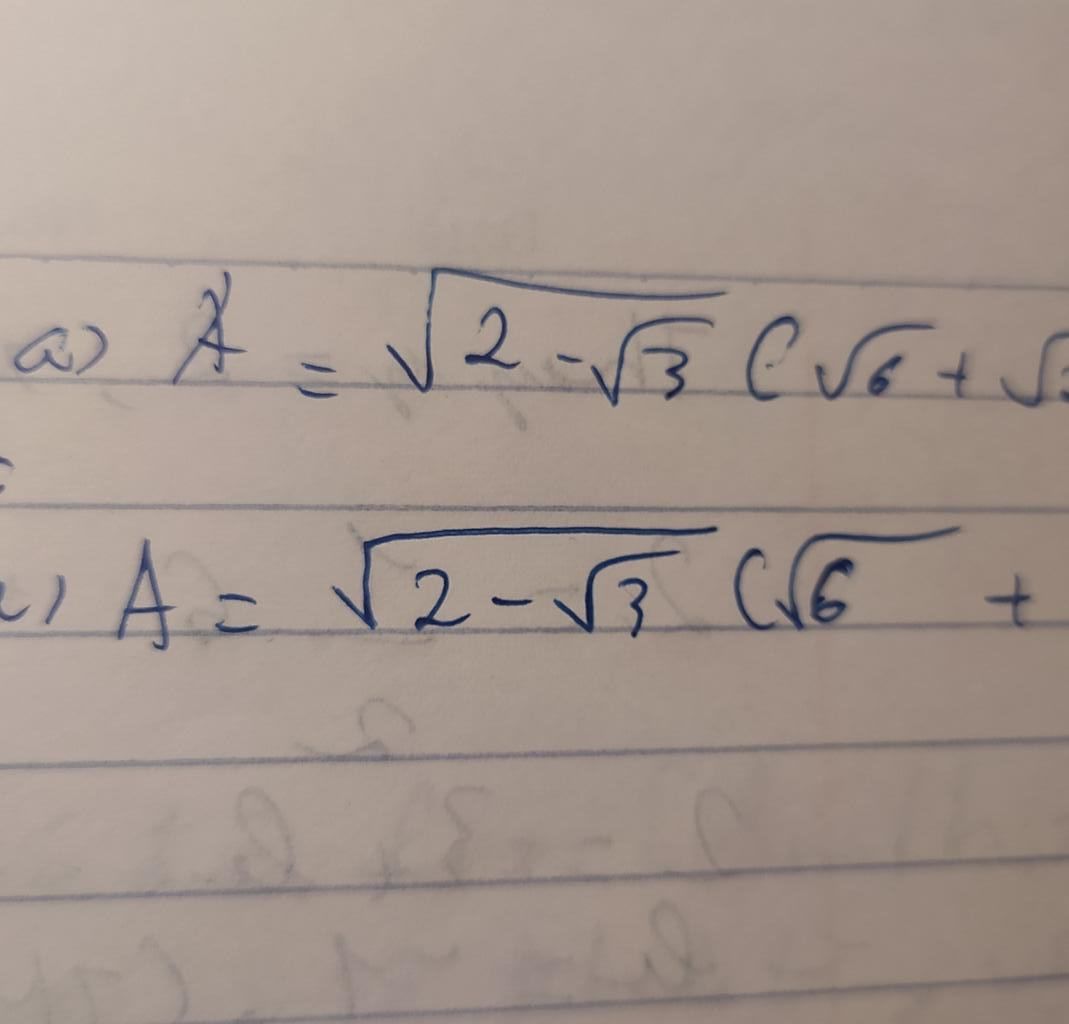 a) A = √(2 - √3) (√6 + √
A = √(2 - √3) (√6 +